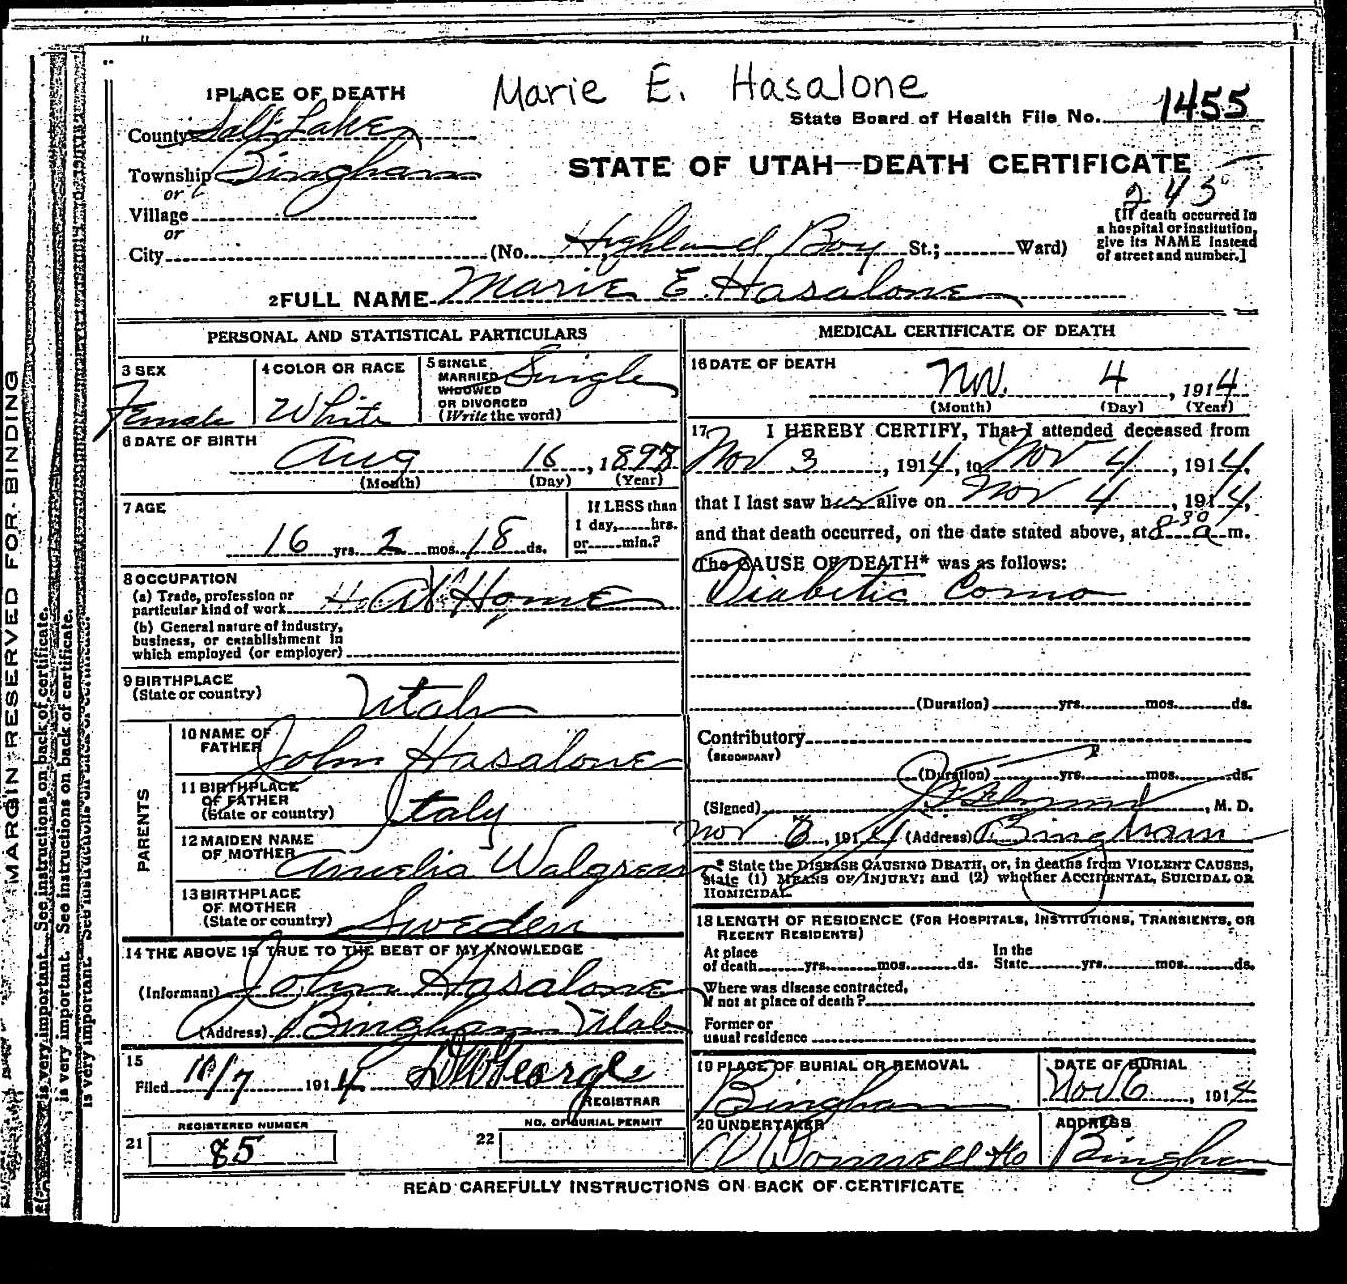 Marie E. Hasalone
1 PLACE OF DEATH
County Salt Lake
State Board of Health File No. 1455
Township Bingham
STATE OF UTAH—DEATH CERTIFICATE
or
245
Village
or
[If death occurred in a hospital or institution, give its NAME instead of street and number.]
City (No. Highland Boy St.; Ward)
2 FULL NAME Marie E. Hasalone
PERSONAL AND STATISTICAL PARTICULARS
3 SEX
Female
4 COLOR OR RACE
White
5 SINGLE
MARRIED
WIDOWED
OR DIVORCED
(Write the word)
Single
6 DATE OF BIRTH
Aug 16, 1898
(Month) (Day) (Year)
7 AGE
16 yrs. 2 mos. 18 ds.
If LESS than
1 day, hrs.
or min.?
8 OCCUPATION
(a) Trade, profession or
particular kind of work At Home
(b) General nature of Industry,
business, or establishment in
which employed (or employer)
9 BIRTHPLACE
(State or country) Utah
PARENTS
10 NAME OF
FATHER John Hasalone
11 BIRTHPLACE
OF FATHER
(State or country) Italy
12 MAIDEN NAME
OF MOTHER Amelia Walgren
13 BIRTHPLACE
OF MOTHER
(State or country) Sweden
14 THE ABOVE IS TRUE TO THE BEST OF MY KNOWLEDGE
(Informant) John Hasalone
(Address) Bingham Utah
15
Filed 11/7 1914 D W George
REGISTRAR
REGISTERED NUMBER
21 85
NO. OF BURIAL PERMIT
22
MEDICAL CERTIFICATE OF DEATH
16 DATE OF DEATH
Nov. 4, 1914
(Month) (Day) (Year)
17 I HEREBY CERTIFY, That I attended deceased from
Nov 3, 1914, to Nov 4, 1914,
that I last saw her alive on Nov 4, 1914,
and that death occurred, on the date stated above, at 8 30 a m.
The CAUSE OF DEATH* was as follows:
Diabetic Coma
(Duration) yrs. mos. ds.
Contributory
(SECONDARY)
(Duration) yrs. mos. ds.
(Signed) , M. D.
Nov 6, 1914 (Address) Bingham
* State the DISEASE CAUSING DEATH, or, in deaths from VIOLENT CAUSES,
state (1) MEANS OF INJURY; and (2) whether ACCIDENTAL, SUICIDAL OR
HOMICIDAL.
18 LENGTH OF RESIDENCE (FOR HOSPITALS, INSTITUTIONS, TRANSIENTS, OR
RECENT RESIDENTS)
At place of death yrs. mos. ds. In the State yrs. mos. ds.
Where was disease contracted,
if not at place of death?
Former or
usual residence
19 PLACE OF BURIAL OR REMOVAL
Bingham
DATE OF BURIAL
Nov 6, 1914
20 UNDERTAKER
O'Donnell & Co
ADDRESS
Bingham
READ CAREFULLY INSTRUCTIONS ON BACK OF CERTIFICATE
MARGIN RESERVED FOR BINDING
is very important. See instructions on back of certificate.
is very important. See instructions on back of certificate.
is very important.